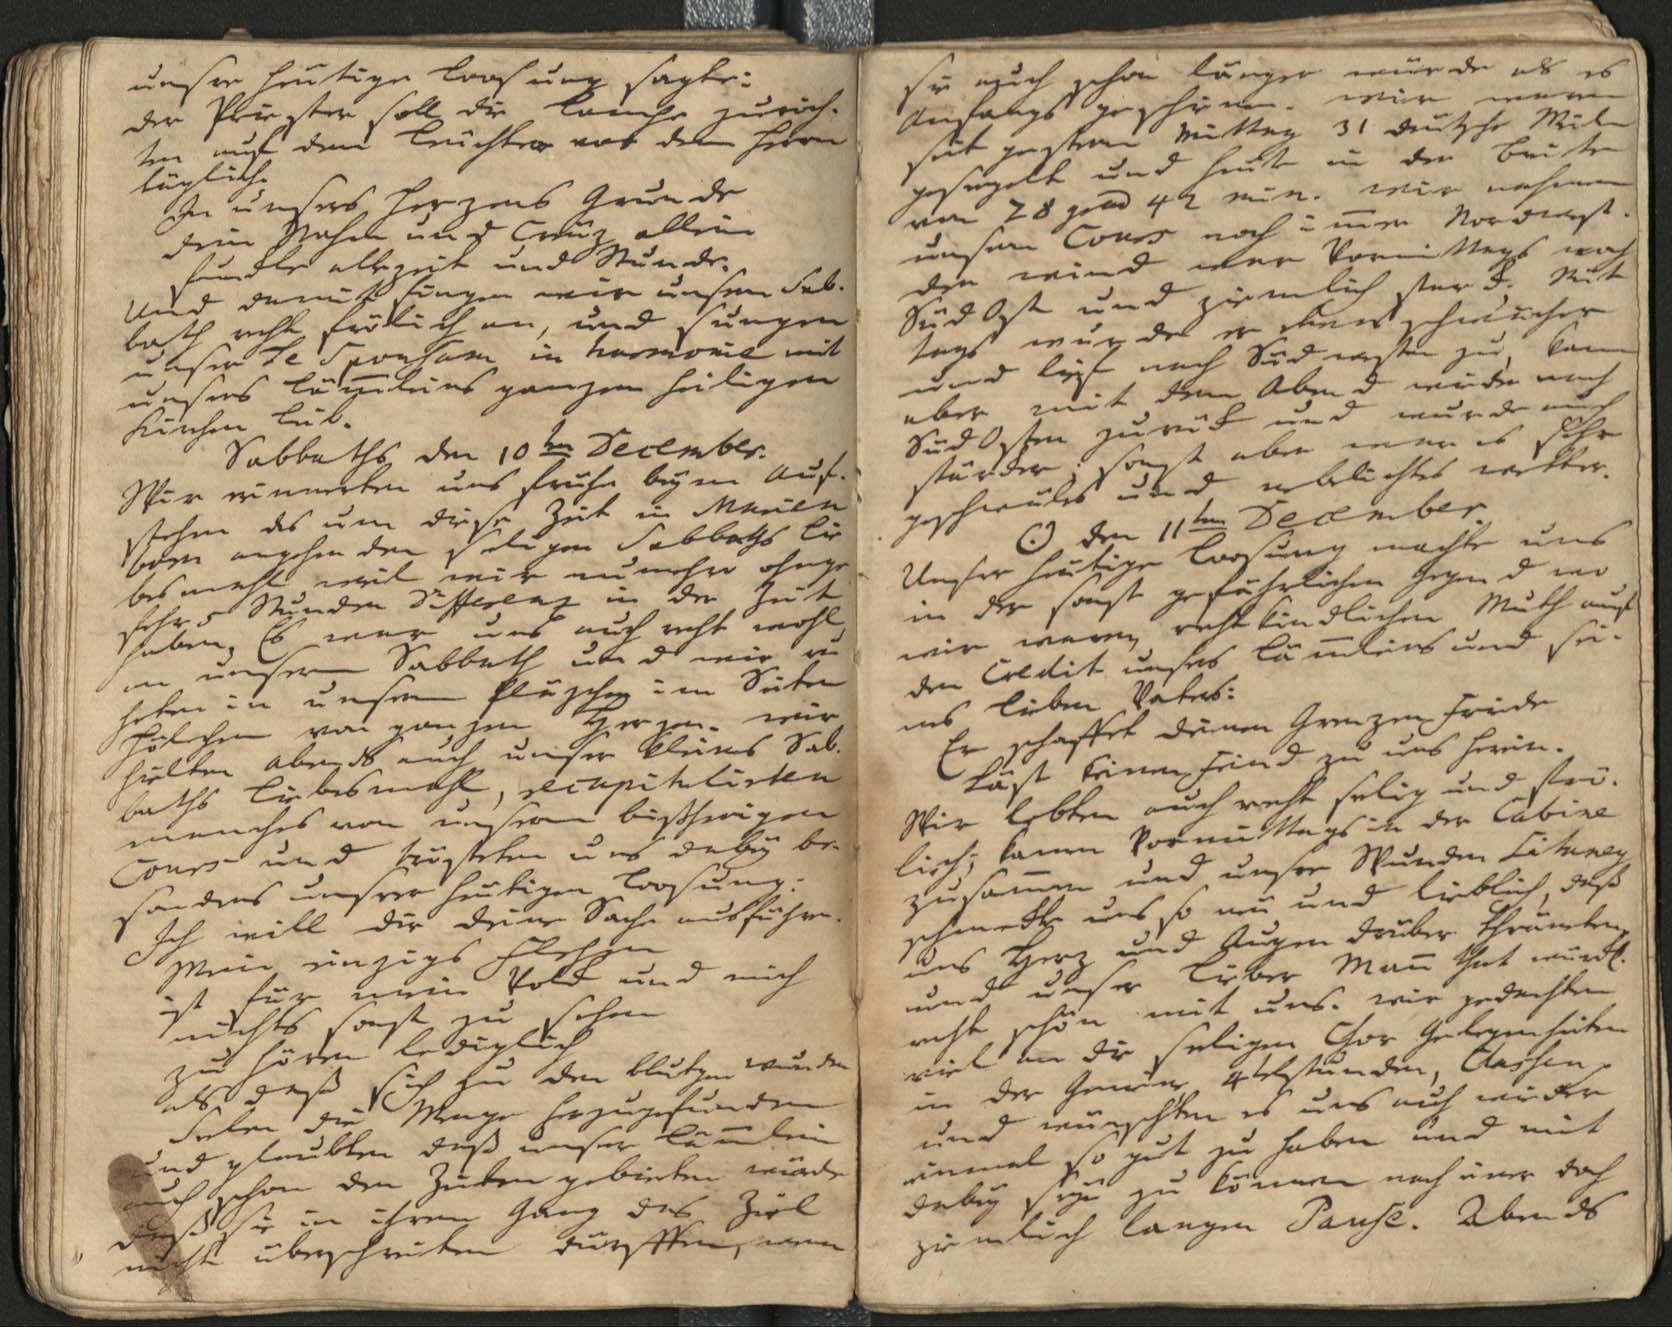 unsre heutige Loosung sagte:
der Priester soll die Lampe zurich-
ten auf dem Leuchter vor dem Herrn
täglich.
In unsers Herzens Grunde
dein Nahm und Creuz allein
funckle allezeit und Stunde.
Und damit fingen wir unsern Sab-
bath recht frölich an, und sungen
unser Te Sponsam in harmonie mit
unsers Lämleins ganzen heiligen
Kirchen Leib.
Sabbaths den 10ten December.
Wir erinnerten uns fruhe beym Auf-
stehen des um diese Zeit in Marien
born angehenden seligen Sabbaths Lie
besmahl, weil wir nunmehro ohnge
fehr Stunden Differenz in der Zeit
haben, Es war uns auch recht wohl
in unserm Sabbath und wir ru
heten in unserm Pläzchen im Seiten
hölchen von ganzem Herzen. wir
hielten abends auch unser kleines Sab-
baths Liebesmahl, recapitulirten
manches von unserm bißherigen
Cours und trösteten uns dabey be-
sonders unsrer heutigen Loosung:
Ich will dir deine Sache ausführen.
Mein einzigs Flehen
ist für mein Volck und mich
nichts sonst zu sehen
zu hören lediglich
als daß sich zu den blutgen wunden
Seelen die Menge herzugefunden
und glaubten daß unser Lämlein
auch schon den Zeiten gebieten würde
daß sie in ihrem Gang das Ziel
nicht überschreiten dürfften, wenn
sie auch schon länger würde als es
Anfangs geschienen. wir waren
seit gestern Mittag 31 deutsche Meilen
gesegelt und heut in der Breite
von 28 grad 42 min. wir nahmen
unsern Cours noch immer Nordwest.
der wind war Vormittags noch
Südost und ziemlich starck. Mit
tags wurde er etwas schwächer
und lief nach Südwesten zu, kam
aber mit dem Abend wieder nach
Südosten zurück und wurde auch
stärcker; sonst aber war es sehr
geschwüles und nebelichtes wetter.
☉ den 11ten December
Unsre heutige Loosung machte uns
in der sonst gefährlichen Gegend wo
wir waren, recht kindlichen Muth auf
den Credit unsers Lämleins und sei-
nes lieben Vaters:
Er schaffet deinen Grenzen Friede
Läst keinen Feind zu uns herein.
Wir lebten auch recht selig und frö-
lich; kamen Vormittags in der Cabine
zusammen und unsre Wunden Litaney
schmeckte uns so neu und lieblich, daß
uns Herz und Augen drüber thränten,
und unser lieber Mann that würckl.
recht schön mit uns. wir gedachten
viel an die seligen Chor Gelegenheiten
in der Gemeine, 4telstunden, Classen,
und wünschten es uns auch wieder
einmal so gut zu haben und mit
dabey seyn zu können nach einer doch
ziemlich langen Pause. Abends